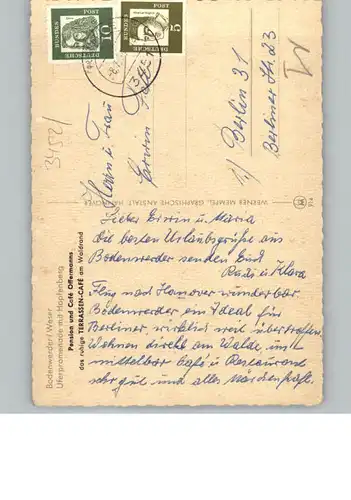 DEUTSCHE BUNDESPOST 10
DEUTSCHE BUNDESPOST 5
Erwin
1/ Berlin 31
Berliner Str. 23
WERNER MEMPEL, GRAPHISCHE ANSTALT, HANNOVER
Lieber Erwin u. Maria
Die besten Urlaubsgrüße aus
Bodenwerder senden Euch
Rudi u Klara
Flug nach Hannover wunderbar.
Bodenwerder ein Ideal für
Berliner, wirklich weit übertroffen.
Wohnen direkt am Walde, un-
mittelbar Café u Restaurant
sehr gut und alles märchenhaft.
Bodenwerder / Weser
Uferpromenade mit Hopfenberg
Pension und Café Offermanns
das ruhige TERRASSEN-CAFÉ am Waldrand
3452/